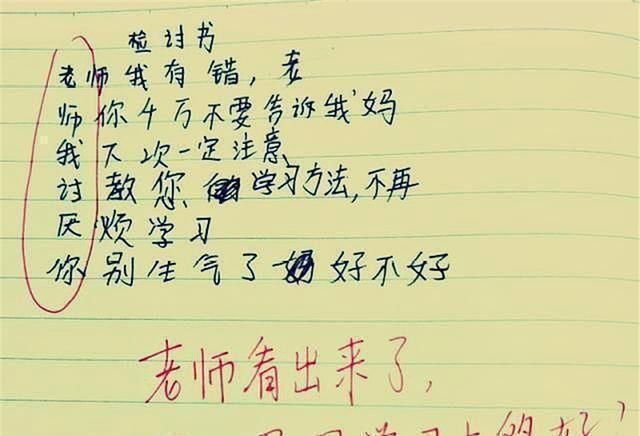 检讨书
老师我有错，老
师你千万不要告诉我妈
我下次一定注意
讨教您 学习方法，不再
厌烦学习
你别生气了 好不好
老师看出来了，